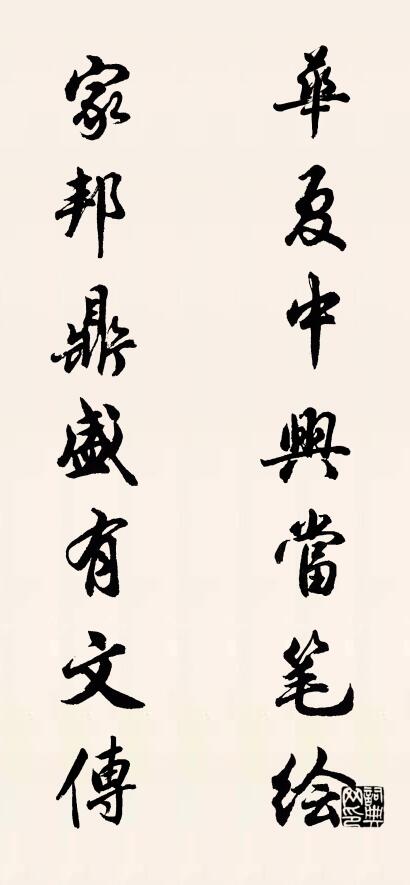 華夏中興當笔绘
家邦鼎盛有文傳